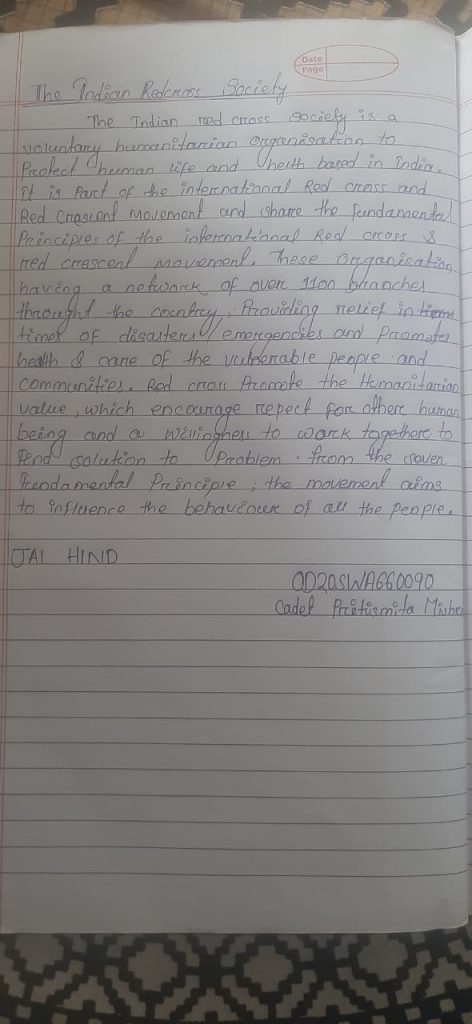 Date
Page
The Indian Redcross Society
The Indian red cross society is a
voluntary humanitarian organisation to
Protect human life and health based in India.
It is Part of the international Red cross and
Red Crascent Movement and share the Fundamental
Principles of the international Red cross &
red crescent movement. These organisation
having a network of over 1100 branches
throught the country. Providing relief in
times of disasters/emergencies and Promotes
health & care of the vulnerable people and
communities. Red cross Promote the Humanitarian
value, which encourage repect for othere human
being and a willingness to work togethere to
find solution to Problem. from the seven
fundamental Principle, the movement aims
to influence the behaviour of all the people.
JAI HIND
OD20SWA660090
Cadet Pritismita Mishra